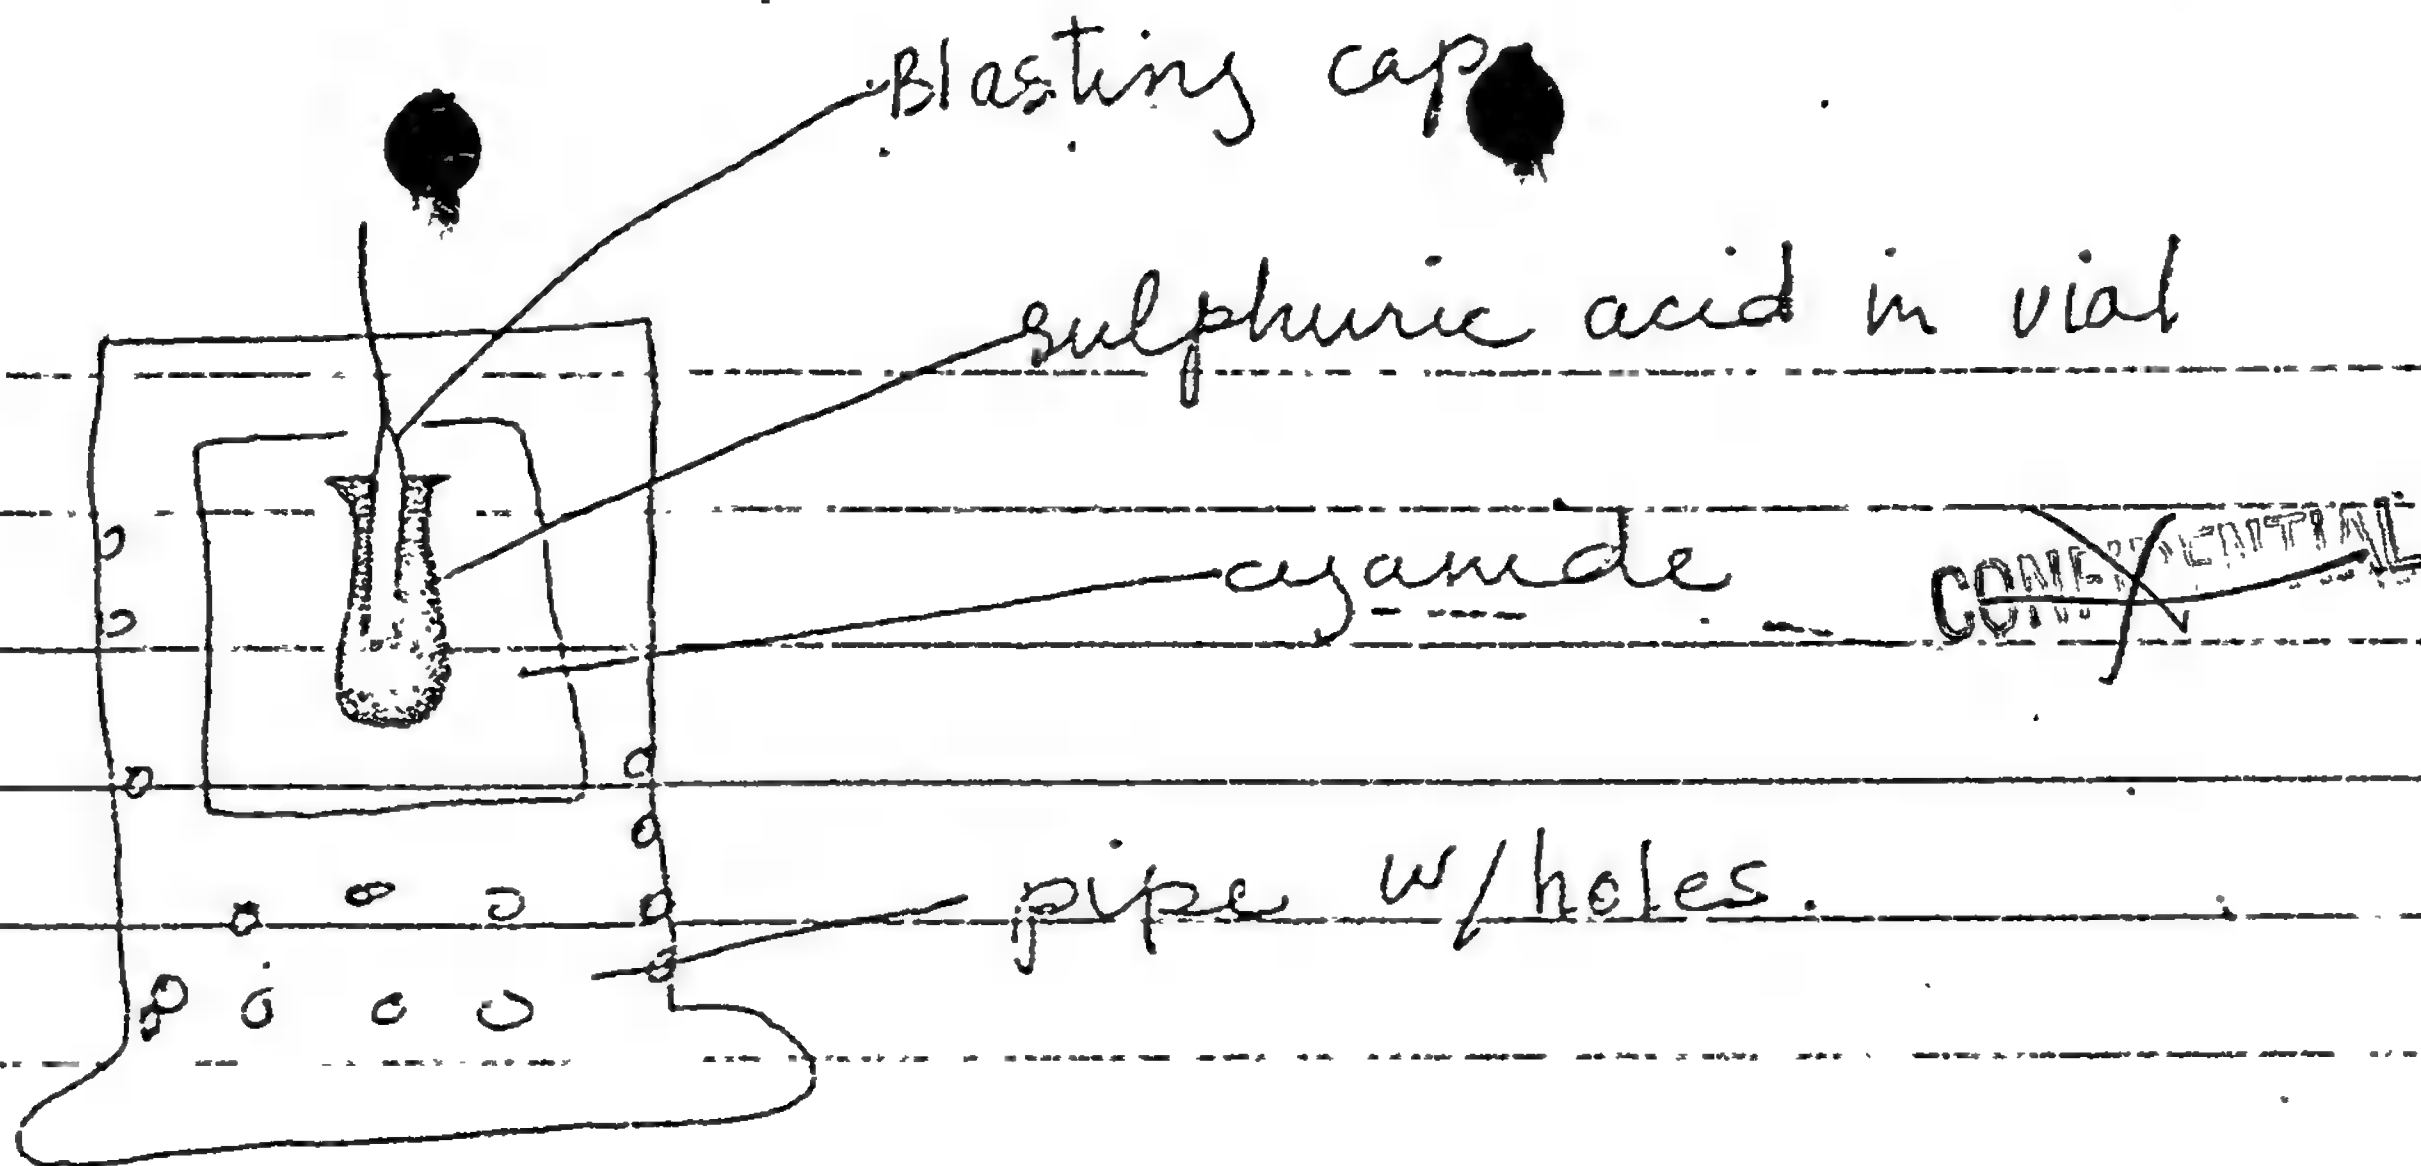 Blasting cap
sulphuric acid in vial
cyanide
CONFIDENTIAL
pipe w/holes.